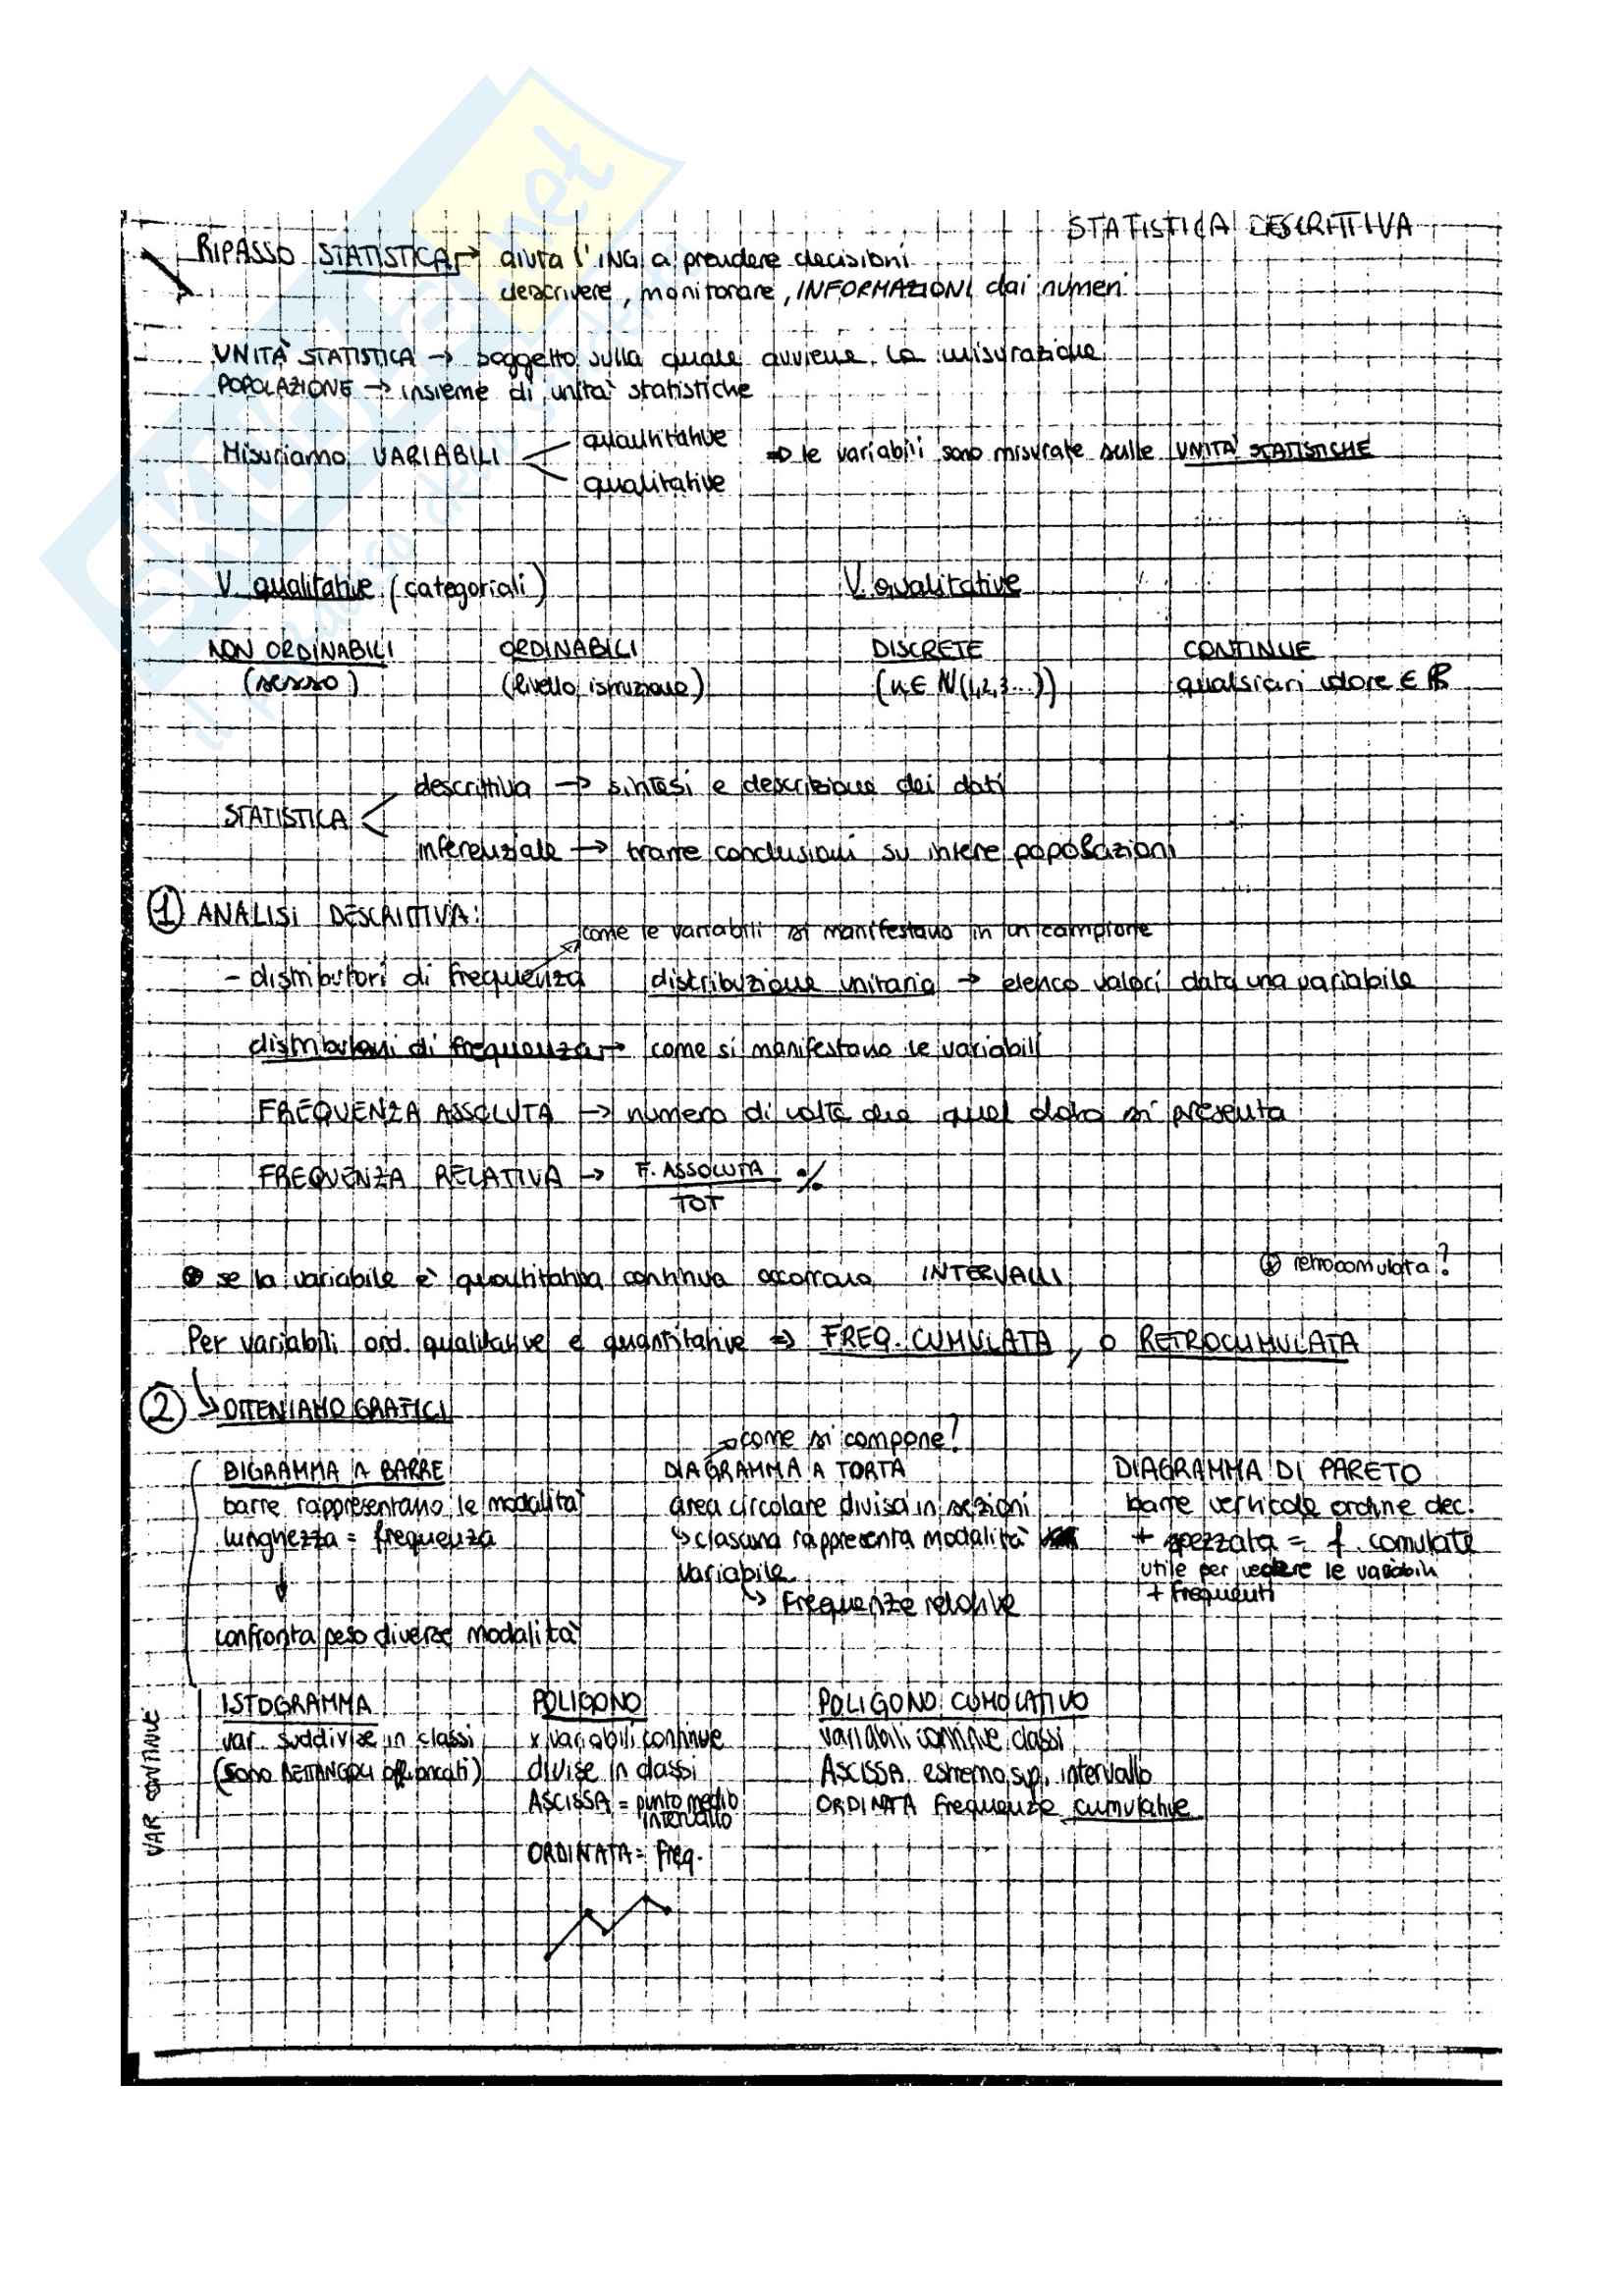 STATISTICA DESCRITTIVA
RIPASSO STATISTICA → aiuta l'ING a prendere decisioni
descrivere, monitorare, INFORMAZIONI dai numeri
UNITÀ STATISTICA → soggetto sulla quale avviene la misurazione
POPOLAZIONE → insieme di unità statistiche
Misuriamo VARIABILI quantitative
qualitative
⇒ le variabili sono misurate sulle UNITÀ STATISTICHE
V. qualitative (categoriali) V. qualitative
NON ORDINABILI ORDINABILI DISCRETE CONTINUE
(sesso) (livello istruzione) (n ∈ N (1,2,3...)) qualsiasi valore ∈ R
STATISTICA
descrittiva → sintesi e descrizione dei dati
inferenziale → trarre conclusioni su intere popolazioni
① ANALISI DESCRITTIVA:
come le variabili si manifestano in un campione
- distributori di frequenza distribuzione unitaria → elenco valori data una variabile
distribuzioni di frequenza → come si manifestano le variabili
FREQUENZA ASSOLUTA → numero di volte che quel dato si presenta
FREQUENZA RELATIVA → F. ASSOLUTA %
TOT
retrocomulata?
se la variabile è quantitativa continua occorrono INTERVALLI
Per variabili ord. qualitative e quantitative ⇒ FREQ. CUMULATA, o RETROCUMULATA
② ↳ OTTENIAMO GRAFICI
come si compone?
BIGRAMMA A BARRE DIAGRAMMA A TORTA DIAGRAMMA DI PARETO
barre rappresentano le modalità area circolare divisa in sezioni barre verticale ordine dec.
lunghezza = frequenza ↳ ciascuna rappresenta modalità + spezzata = f. comulate
variabile utile per vedere le variabili
↳ Frequenze relative + frequenti
confronta peso diverse modalità
VAR CONTINUE
ISTOGRAMMA POLIGONO POLIGONO CUMOLATIVO
var. suddivise in classi x variabili continue variabili continue classi
(sono RETTANGOLI affiancati) divise in classi ASCISSA estremo sup. intervallo
ASCISSA = punto medio ORDINATA Frequenze cumulative
intervallo
ORDINATA = freq.